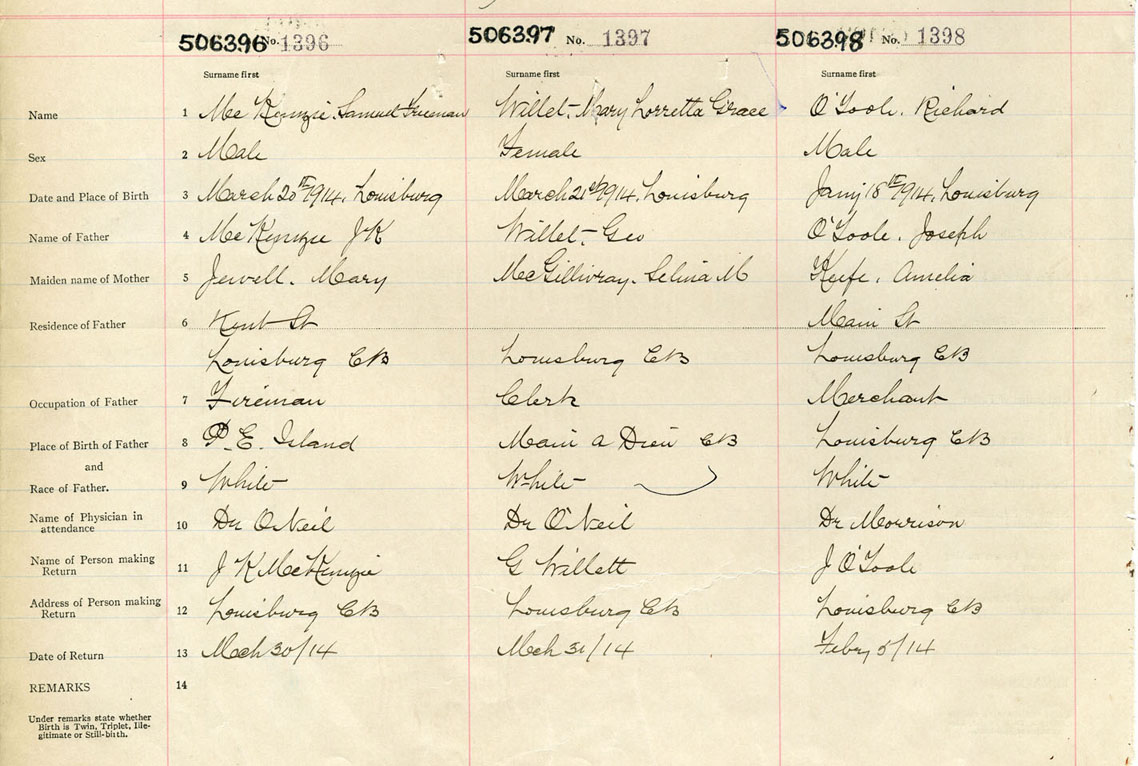 506396 No. 1396 506397 No. 1397 506398 No. 1398
Surname first Surname first Surname first
Name 1 McKenzie. Samuel Freeman Willet. Mary Lorretta Grace O'Toole. Richard
Sex 2 Male Female Male
Date and Place of Birth 3 March 20th 1914. Louisburg March 21st 1914. Louisburg Jany 18th 1914. Louisburg
Name of Father 4 McKenzie J K Willet. Geo O'Toole. Joseph
Maiden name of Mother 5 Jewell. Mary McGillivray. Selina M Keefe. Amelia
Residence of Father 6 Kent St Main St
Louisburg CB Louisburg CB Louisburg CB
Occupation of Father 7 Fireman Clerk Merchant
Place of Birth of Father 8 P. E. Island Main a Dieu CB Louisburg CB
and
Race of Father. 9 White White White
Name of Physician in attendance 10 Dr O'Neil Dr O'Neil Dr Morrison
Name of Person making Return 11 J K McKenzie G Willett J O'Toole
Address of Person making Return 12 Louisburg CB Louisburg CB Louisburg CB
Date of Return 13 Mch 30/14 Mch 31/14 Feby 5/14
REMARKS 14
Under remarks state whether
Birth is Twin, Triplet, Ille-
gitimate or Still-birth.